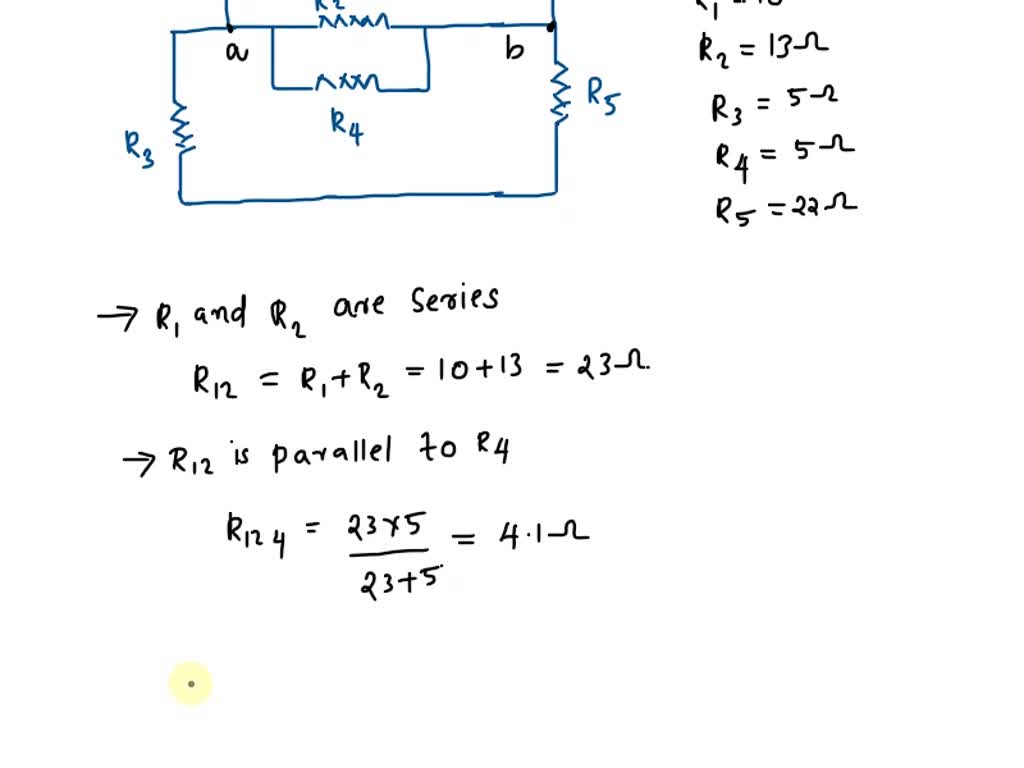 R2
a
b
R3
R4
R5
R2 = 13Ω
R3 = 5Ω
R4 = 5Ω
R5 = 22Ω
→ R1 and R2 are series
R12 = R1 + R2 = 10 + 13 = 23Ω.
→ R12 is parallel to R4
R124 = 23×5 / 23+5 = 4.1Ω